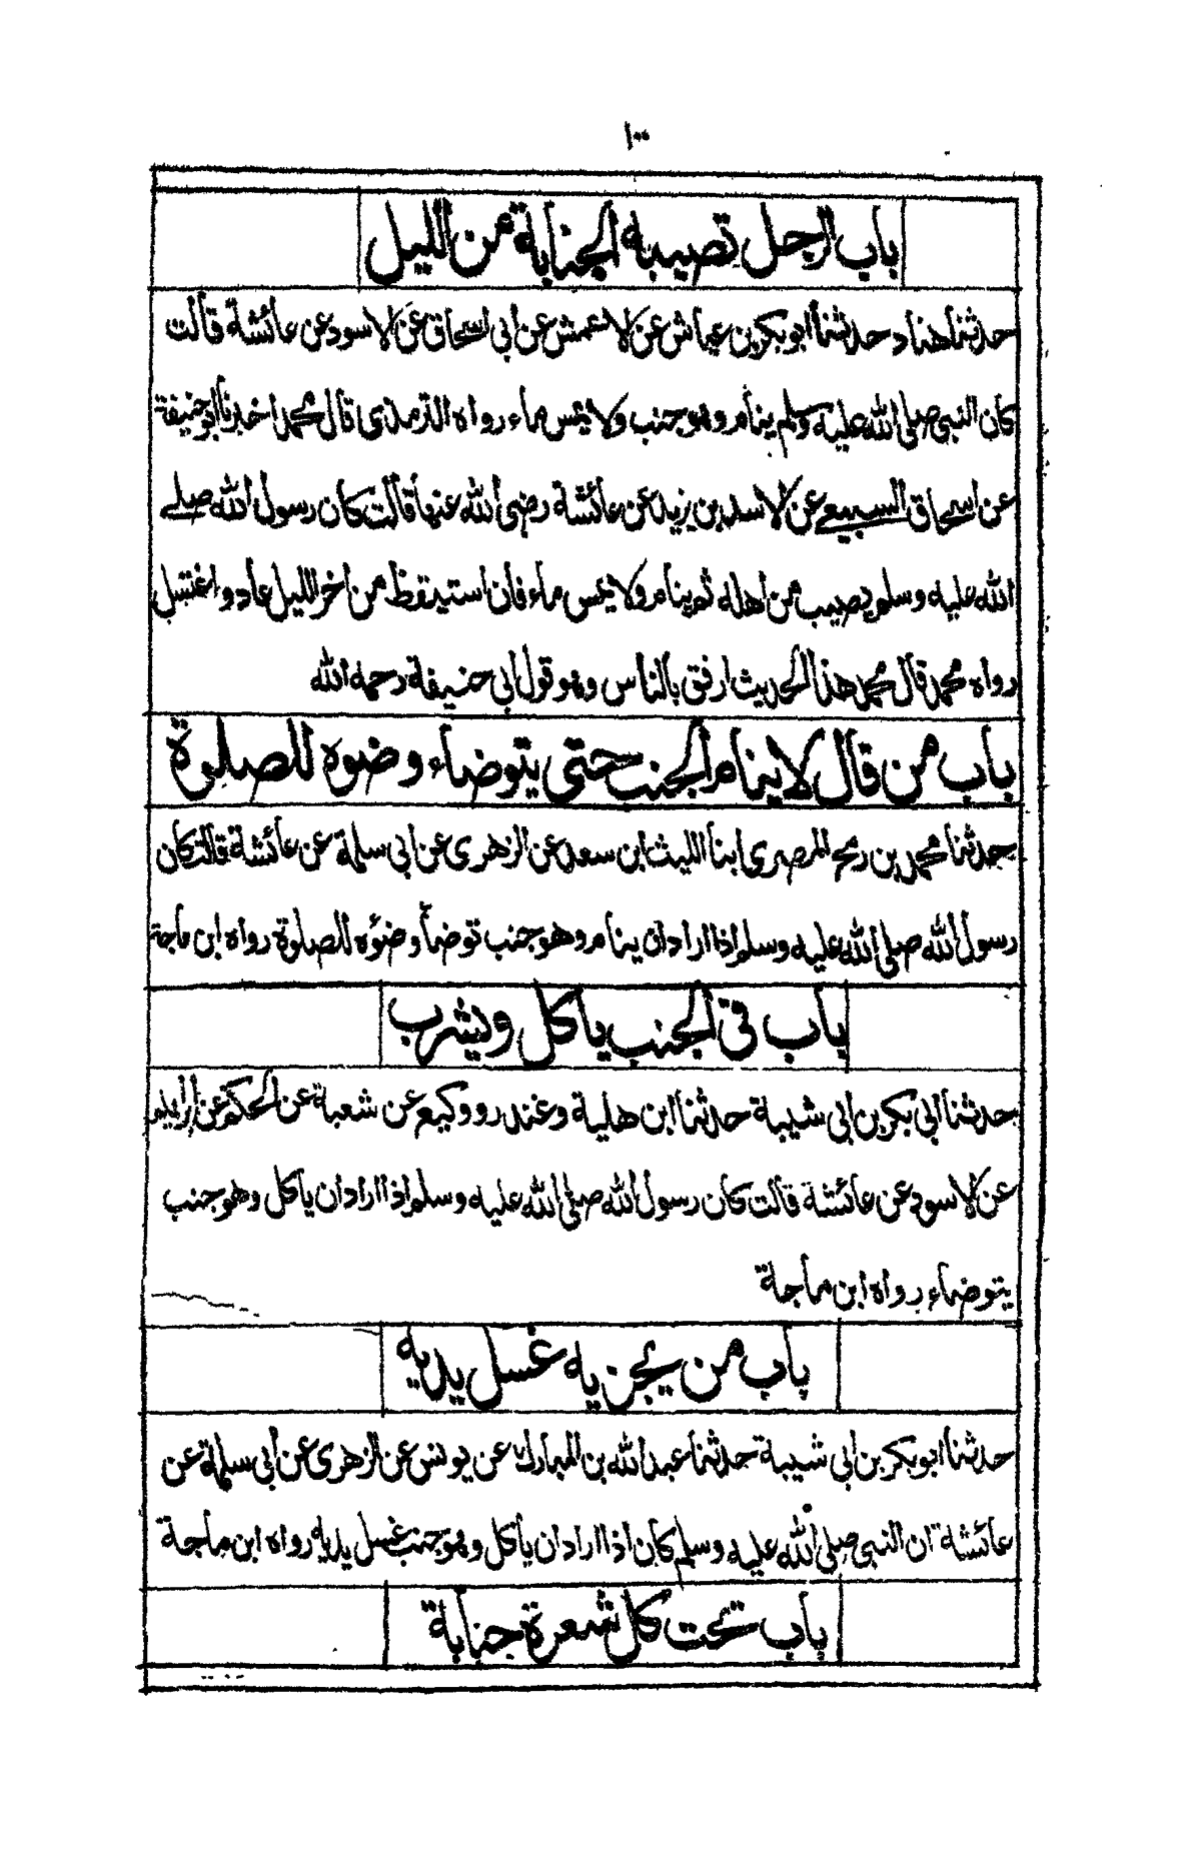 ١٠٠
باب الرجل تصيبه الجنابة من الليل
حدثنا هناد حدثنا ابوبكر بن عياش عن الاعمش عن ابي اسحاق عن الاسود عن عائشة قالت
كان النبي صلى الله عليه وسلم ينام وهو جنب ولا يمس ماء رواه الترمذى قال محمد اخبرنا ابو حنيفة
عن اسحاق السبيعي عن الاسد بن يزيد عن عائشة رضي الله عنها قالت كان رسول الله صلے
الله عليه وسلم يصيب من اهله ثم ينام ولا يمس ماء فان استيقظ من اخر الليل عاد و اغتسل
رواه محمد قال محمد هذا الحديث ارفق بالناس وهو قول ابي حنيفة رحمه الله
باب من قال لا ينام الجنب حتى يتوضاء وضوه للصلوة
حدثنا محمد بن رمح المصرى ابنا الليث ابن سعد عن الزهرى عن ابي سلمة عن عائشة قالت كان
رسول الله صلى الله عليه وسلم اذا اراد ان ينام وهو جنب توضأ وضوئه للصلوة رواه ابن ماجة
باب في الجنب ياكل ويشرب
حدثنا ابي بكر بن ابي شيبة حدثنا ابن هلية وغندر ووكيع عن شعبة عن الحكم عن ابراهيم
عن الاسود عن عائشة قالت كان رسول الله صلى الله عليه وسلم اذا اراد ان ياكل وهو جنب
يتوضاء رواه ابن ماجة
باب من يجزيه غسل يديه
حدثنا ابوبكر بن ابي شيبة حدثنا عبد الله بن المبارك عن يونس عن الزهرى عن ابي سلمة عن
عائشة ان النبي صلى الله عليه وسلم كان اذا اراد ان ياكل وهو جنب غسل يديه رواه ابن ماجة
باب تحت كل شعرة جنابة